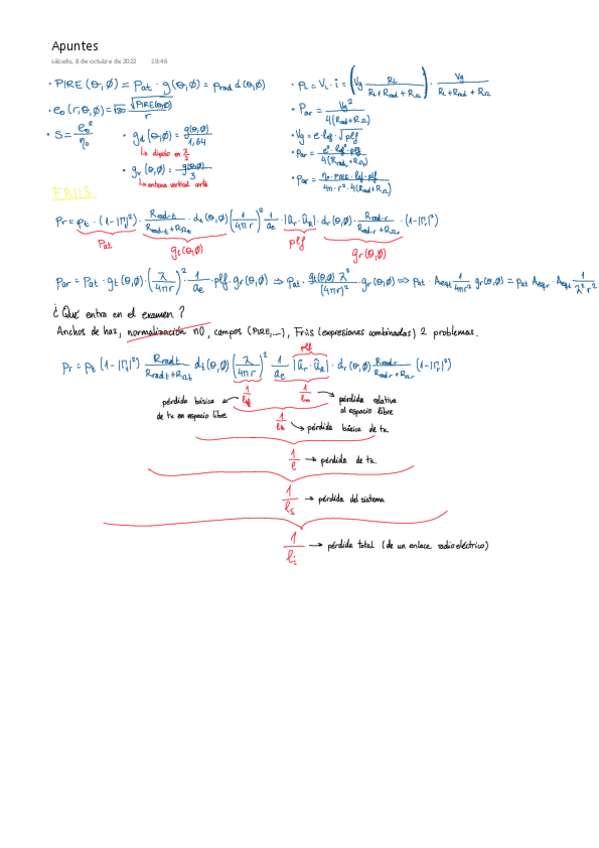 Apuntes
sábado, 8 de octubre de 2022 19:46
· PIRE(θ,φ) = Pat · g(θ,φ) = Prad d(θ,φ)
· e₀(r,θ,φ) = √30 √PIRE(θ,φ) / r
· S = e₀² / η₀
· gd(θ,φ) = g(θ,φ) / 1,64
↳ dipolo en λ/2
· gv(θ,φ) = g(θ,φ) / 3
↳ antena vertical corta
· PL = VL · i = (Vg RL / (RL+Rrad+RΩ)) · Vg / (RL+Rrad+RΩ)
· Par = Vg² / 4(Rrad+RΩ)
· Vg = e · lef · √plf
· Par = e² · lef² · plf / 4(Rrad+RΩ)
· Par = η₀ · PIRE · lef · plf / 4π · r² · 4(Rrad+RΩ)
FRIIS
Pr = Pt · (1-|Γt|²) · Rrad t / (Rrad t + RΩt) · dt(θ,φ) (λ / 4πr)² 1/ae · |ûr · ûa| · dr(θ,φ) · Rrad r / (Rrad r + RΩr) · (1-|Γr|²)
Pat gt(θ,φ) plf gr(θ,φ)
Par = Pat · gt(θ,φ) · (λ / 4πr)² · 1/ae · plf · gr(θ,φ) ⇒ Pat · gt(θ,φ) λ² / (4πr)² · gr(θ,φ) ⇒ Pat · Aeqt 1 / 4πr² gr(θ,φ) = Pat Aeqr · Aeqt 1 / λ² r²
¿Qué entra en el examen?
Anchos de haz, normalización nO, campos (PIRE,...), Friis (expresiones combinadas) 2 problemas.
plf
Pr = Pt (1-|Γt|²) Rrad t / (Rrad t + RΩt) dt(θ,φ) (λ / 4πr)² 1/ae |ûr · ûa| · dr(θ,φ) Rrad r / (Rrad r + RΩr) (1-|Γr|²)
pérdida básica de tx en espacio libre ← 1/lbf 1/lm → pérdida relativa al espacio libre
1/lb → pérdida básica de tx
1/l → pérdida de tx
1/ls → pérdida del sistema
1/li → pérdida total (de un enlace radioeléctrico)